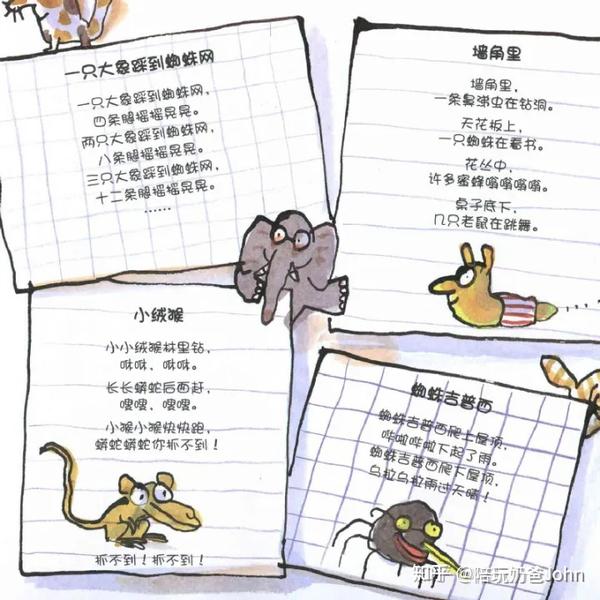 一只大象踩到蜘蛛网
一只大象踩到蜘蛛网,
四条腿摇摇晃晃。
两只大象踩到蜘蛛网,
八条腿摇摇晃晃。
三只大象踩到蜘蛛网,
十二条腿摇摇晃晃。
……
墙角里
墙角里,
一条鼻涕虫在钻洞。
天花板上,
一只蜘蛛在看书。
花丛中,
许多蜜蜂嗡嗡嗡嗡。
桌子底下,
几只老鼠在跳舞。
小绒猴
小小绒猴林里钻,
咻咻、咻咻。
长长蟒蛇后面赶,
嗖嗖、嗖嗖。
小猴小猴快快跑,
蟒蛇蟒蛇你抓不到!
抓不到!抓不到!
蜘蛛吉普西
蜘蛛吉普西爬上屋顶,
哗啦哗啦下起了雨。
蜘蛛吉普西爬下屋顶,
乌拉乌拉雨过天晴!
知乎 @陪玩奶爸John